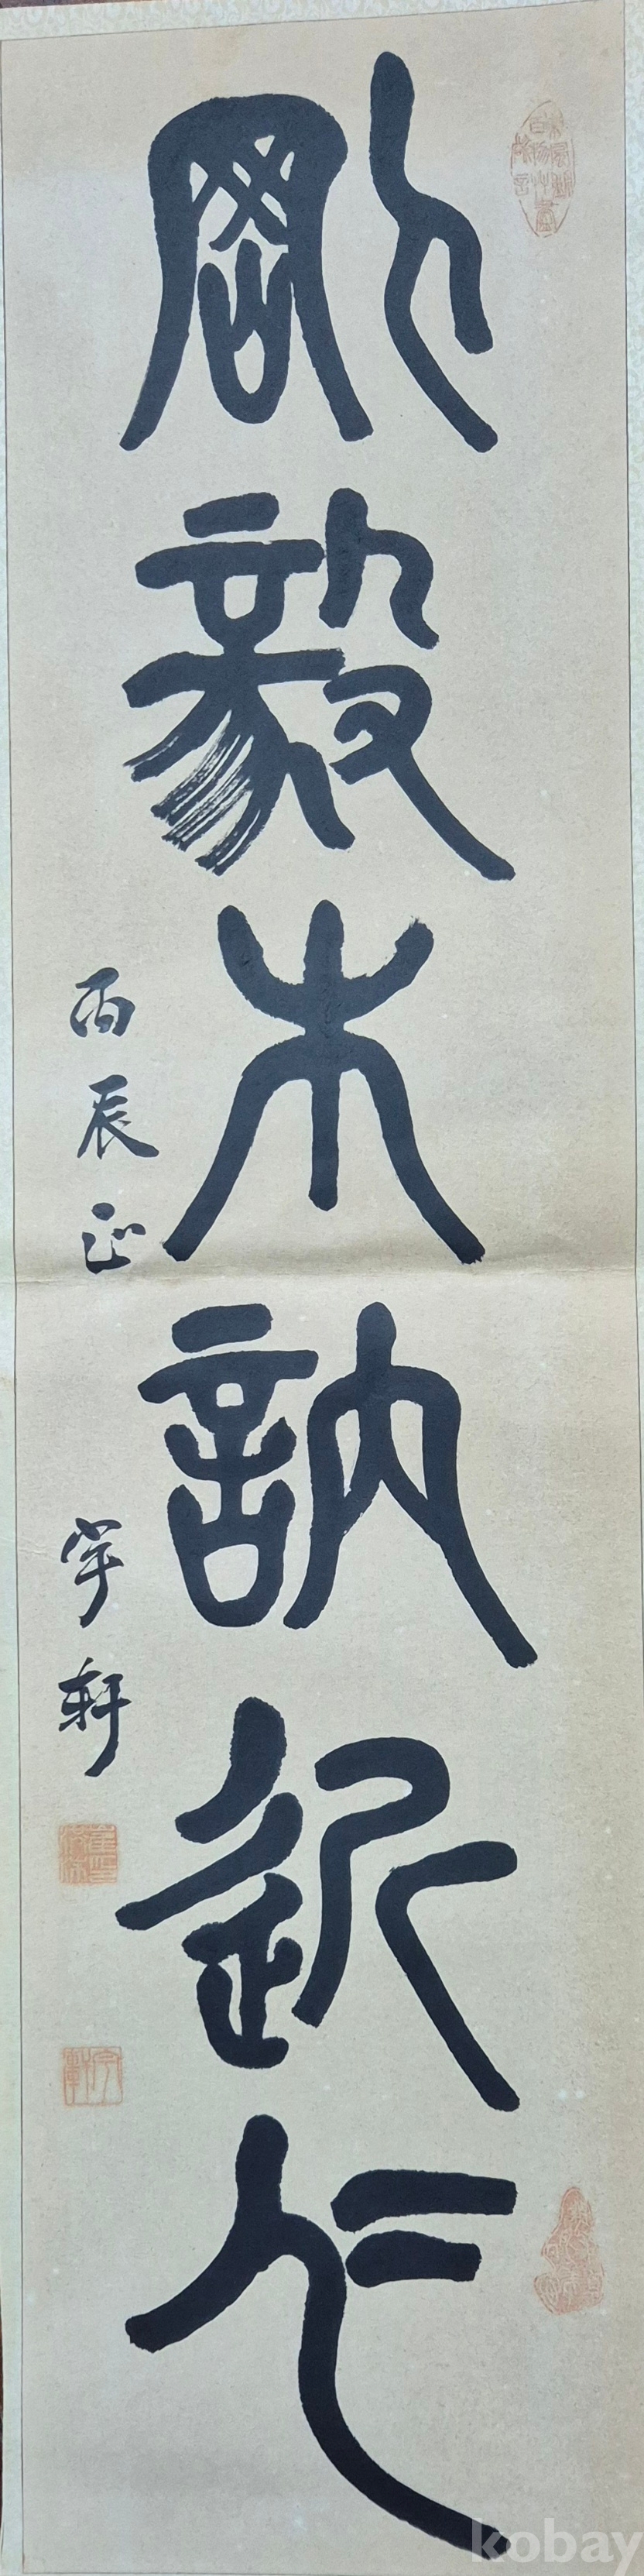 剛毅木訥近仁
丙辰正 宇軒
kobay